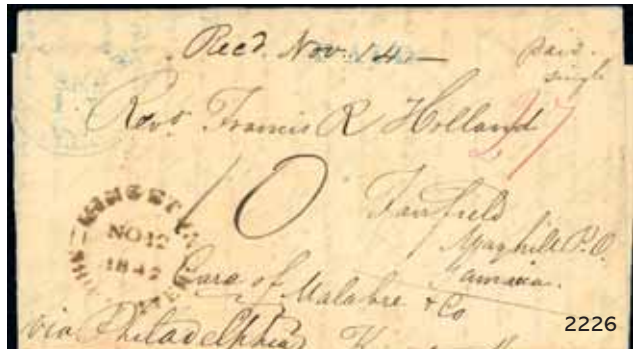 Recd. Nov. 14 —
paid.
single
Revd. Francis R Holland
27
10
Fairfield
Mayhill P.O.
Jamaica.
KINGSTON
NO 12
1842
Care of
Malabre & Co
via Philadelphia
2226